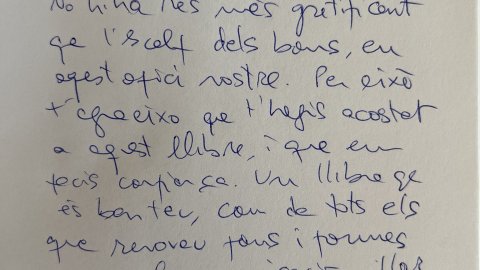 No hi ha res més gratificant
que l'escalf dels bons, en
aquest ofici nostre. Per això
t'agraeixo que t'hagis acostat
a aquest llibre, i que em
facis confiança. Un llibre que
és ben teu, com de tots els
que renoveu fons i formes